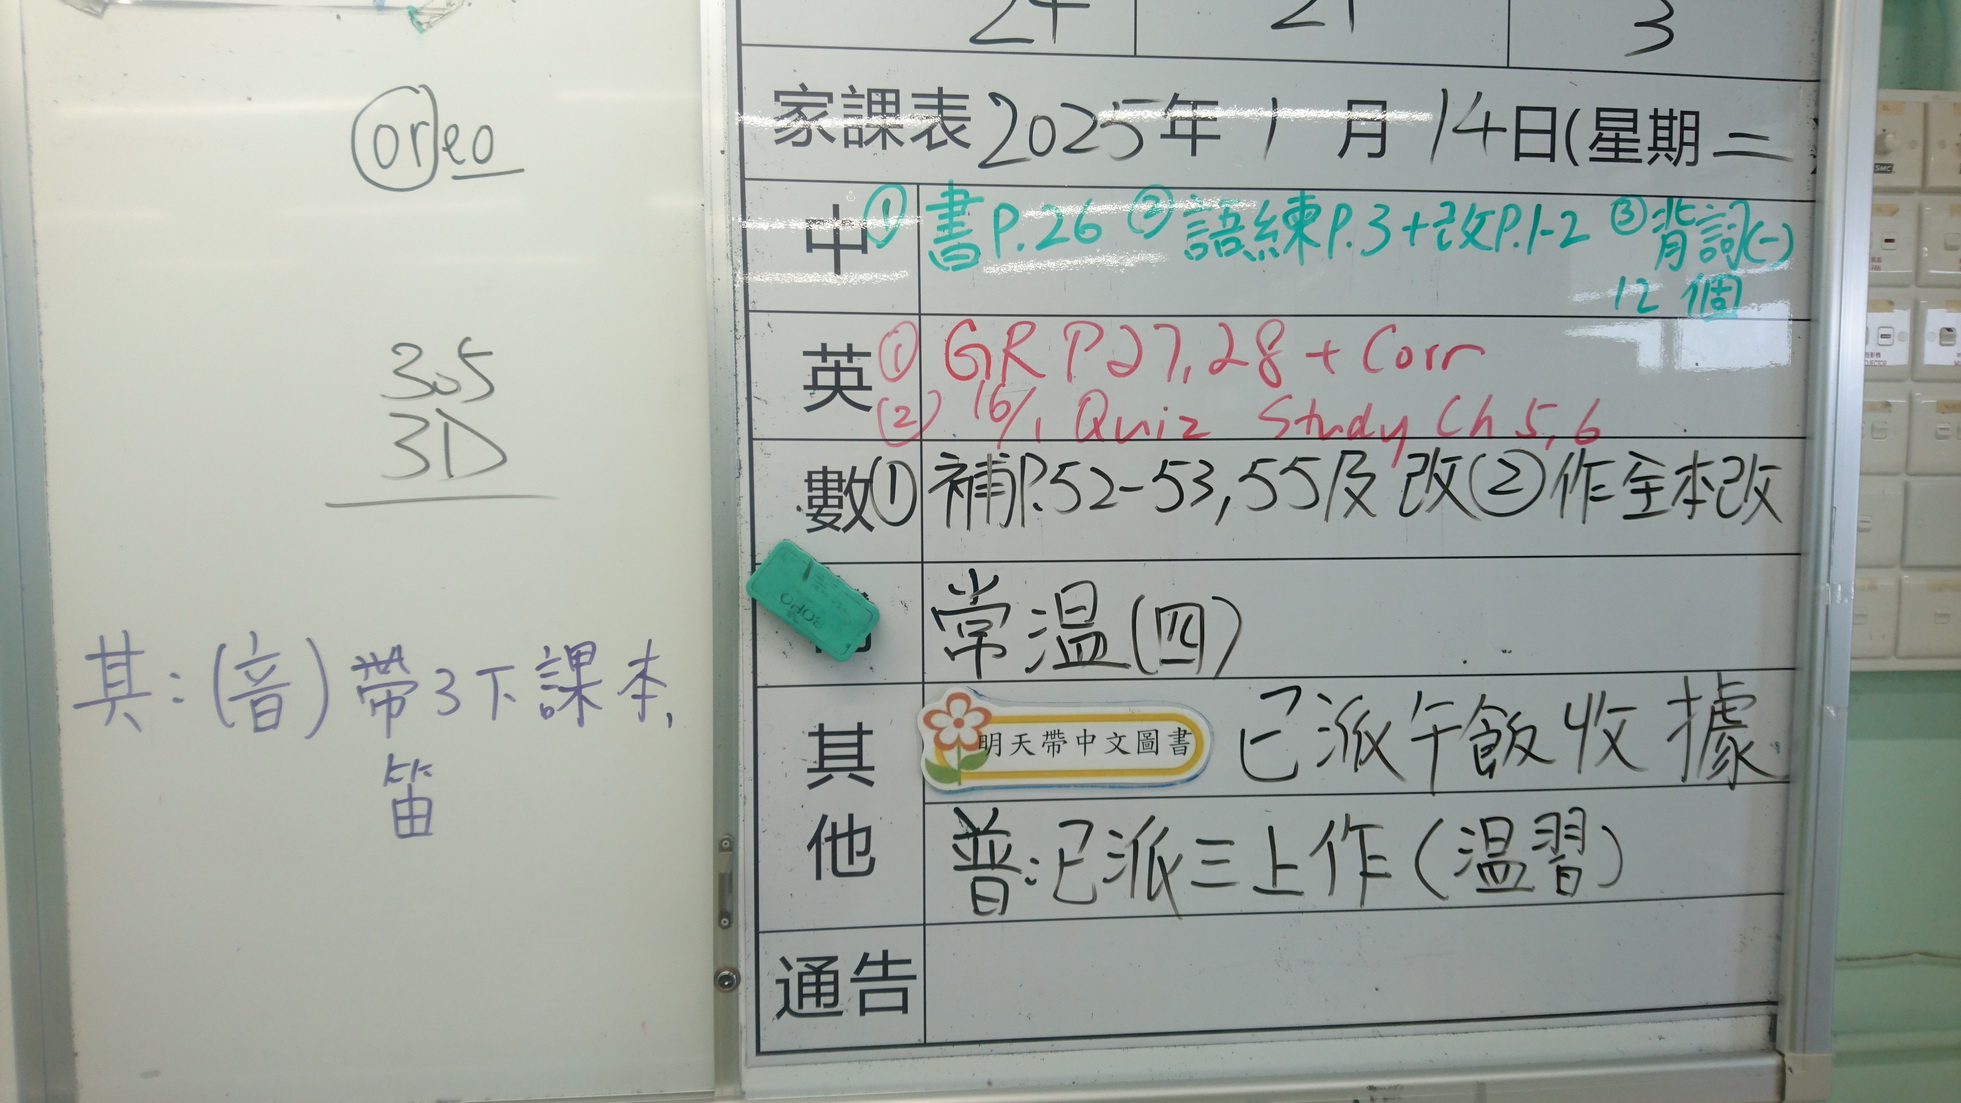 oreo
3.5
3D
其:(音)帶3下課本,
笛
24 21 3
家課表2025年1月14日(星期二
中 ①書P.26 ②語練P.3+改P.1-2 ③背詞(一)
12個
英 ① GR P27,28 + Corr
(2) 16/1 Quiz Study Ch 5,6
數 ①補P.52-53,55及改②作至本改
常温(四)
其他 明天帶中文圖書 已派午飯收據
普:已派三上作(温習)
通告